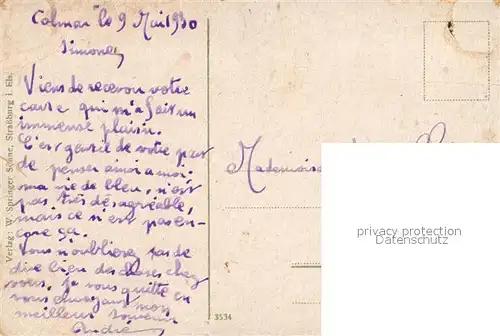 Colmar le 9 Mai 1930
Simone,
Viens de recevoir votre
carte qui m'a fait un
immense plaisir.
C'est gentil de votre part
de penser ainsi à moi.
ma vie de bleu, n'est
pas très désagréable,
mais ce n'est pas en-
core ça.
Vous n'oublierez pas de
dire bien des choses chez
vous. Je vous quitte en
vous envoyant mon
meilleur souvenir
André
Mademoise
Verlag: W. Springer Söhne, Straßburg i. Els.
3534
privacy protection
Datenschutz